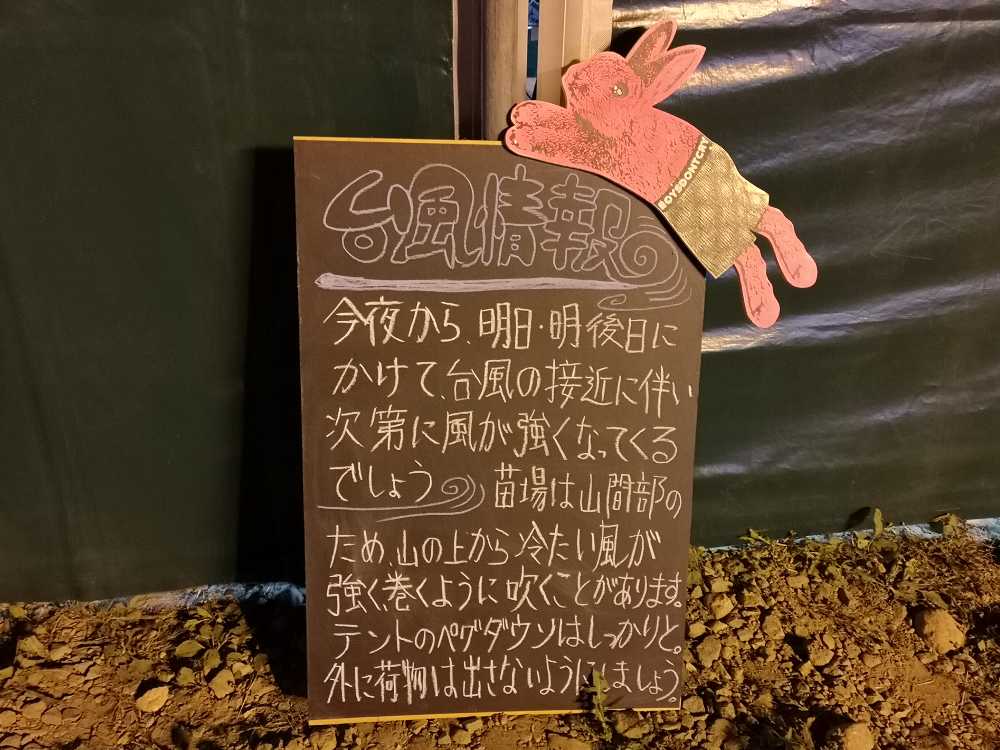 台風情報
BOYSDONTCRY
今夜から、明日・明後日に
かけて、台風の接近に伴い
次第に風が強くなってくる
でしょう 苗場は山間部の
ため、山の上から冷たい風が
強く、巻くように吹くことがあります。
テントのペグダウンはしっかりと。
外に荷物は出さないようにしましょう。